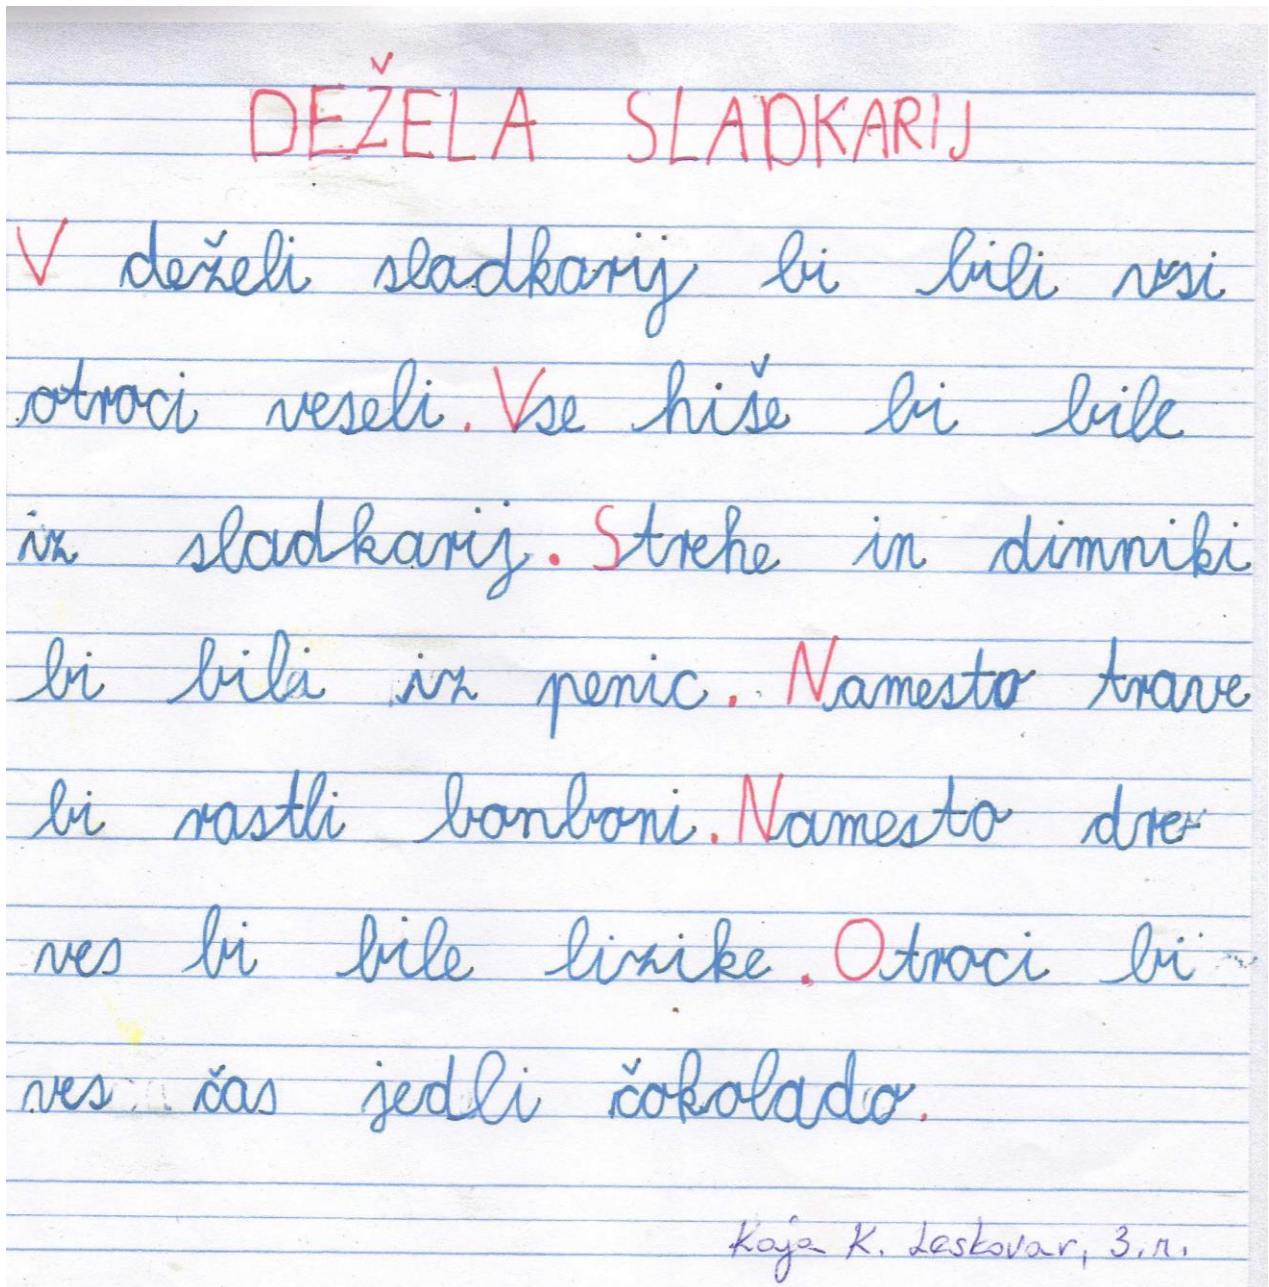 DEŽELA SLADKARIJ
V deželi sladkarij bi bili vsi
otroci veseli. Vse hiše bi bile
iz sladkarij. Strehe in dimniki
bi bili iz penic. Namesto trave
bi rastli bonboni. Namesto dre-
ves bi bile lizike. Otroci bi
ves čas jedli čokolado.
Kaja K. Leskovar, 3.r.